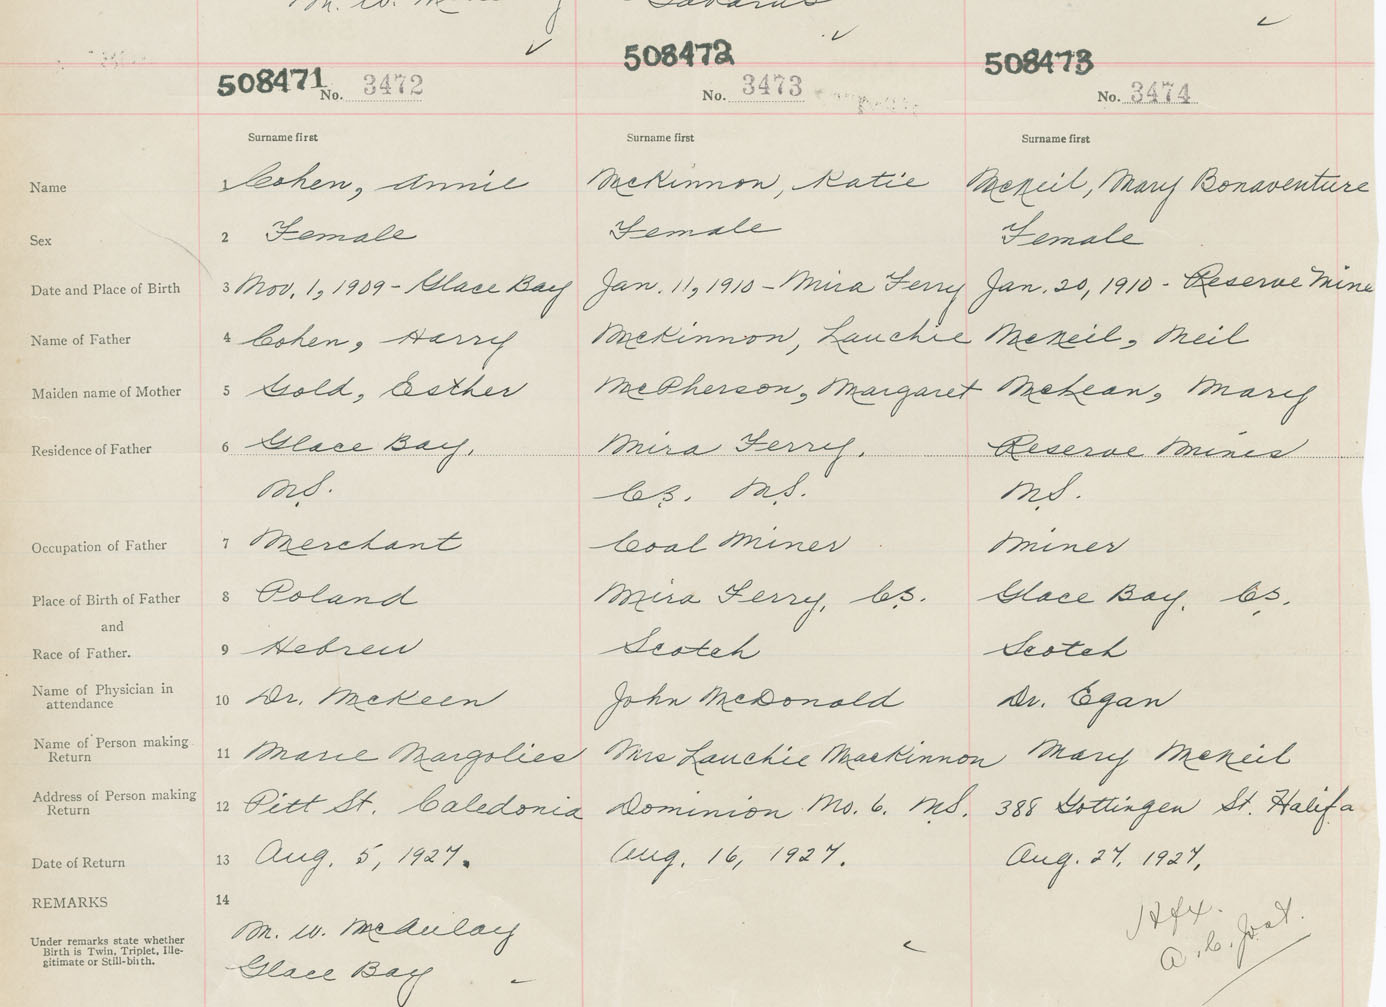 M. W.
508471 508472 508473
No. 3472 No. 3473 No. 3474
Surname first Surname first Surname first
Name 1 Cohen, Annie McKinnon, Katie McNeil, Mary Bonaventure
Sex 2 Female Female Female
Date and Place of Birth 3 Nov. 1, 1909 - Glace Bay Jan. 11, 1910 - Mira Ferry Jan. 20, 1910 - Reserve Mine
Name of Father 4 Cohen, Harry McKinnon, Lauchie McNeil, Neil
Maiden name of Mother 5 Gold, Esther McPherson, Margaret McLean, Mary
Residence of Father 6 Glace Bay, Mira Ferry, Reserve Mines
N.S. C.B. N.S. N.S.
Occupation of Father 7 Merchant Coal Miner Miner
Place of Birth of Father 8 Poland Mira Ferry, C.B. Glace Bay, C.B.
and
Race of Father. 9 Hebrew Scotch Scotch
Name of Physician in
attendance 10 Dr. McKeen John McDonald Dr. Egan
Name of Person making
Return 11 Marie Margolies Mrs Lauchie MacKinnon Mary McNeil
Address of Person making
Return 12 Pitt St. Caledonia Dominion No. 6. N.S. 388 Gottingen St. Halifa
Date of Return 13 Aug. 5, 1927. Aug. 16, 1927. Aug. 27, 1927.
REMARKS 14
Under remarks state whether
Birth is Twin, Triplet, Ille-
gitimate or Still-birth.
M. W. McAulay
Glace Bay
Hfx.
A. C. Jost.